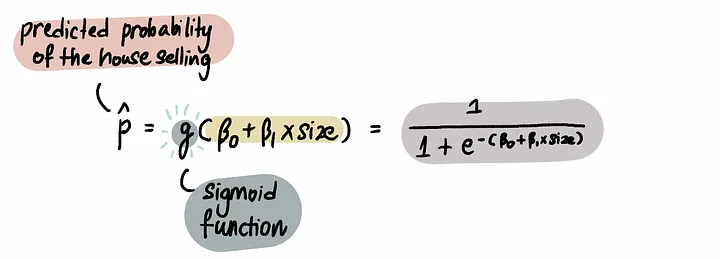 predicted probability
of the house selling
p̂ = g(β₀+β₁×size) = 1 / (1 + e^-(β₀+β₁×size))
sigmoid
function